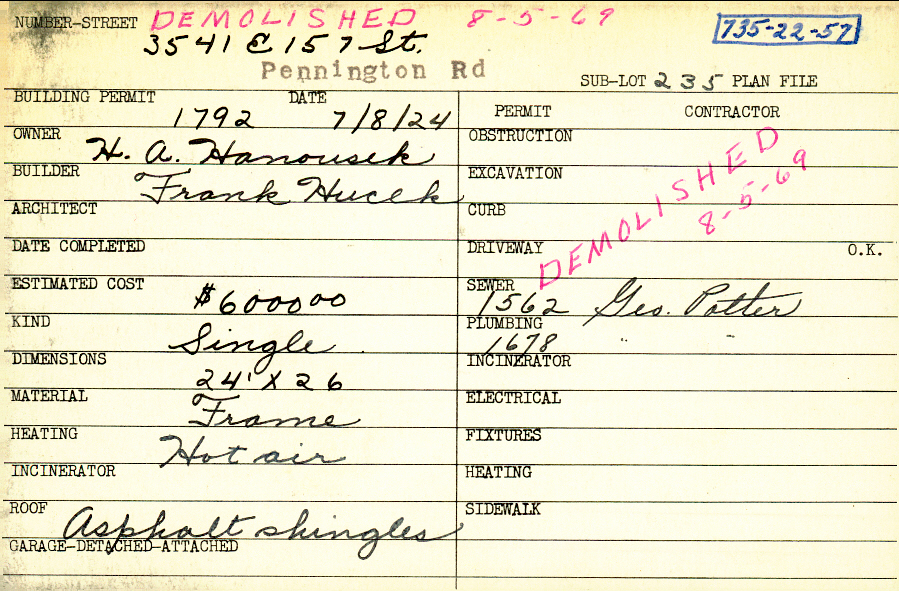 NUMBER-STREET DEMOLISHED 8-5-69
735-22-57
3541 E 157 St.
Pennington Rd
SUB-LOT 235 PLAN FILE
BUILDING PERMIT 1792 DATE 7/8/24
OWNER H. A. Hanousek
BUILDER Frank Hucek
ARCHITECT
DATE COMPLETED
ESTIMATED COST $6000 00
KIND Single
DIMENSIONS 24' X 26
MATERIAL Frame
HEATING Hot air
INCINERATOR
ROOF Asphalt shingles
GARAGE-DETACHED-ATTACHED
PERMIT CONTRACTOR
OBSTRUCTION
EXCAVATION
CURB
DEMOLISHED
8-5-69
DRIVEWAY O.K.
SEWER 1562 Geo. Potter
PLUMBING 1678 " "
INCINERATOR
ELECTRICAL
FIXTURES
HEATING
SIDEWALK